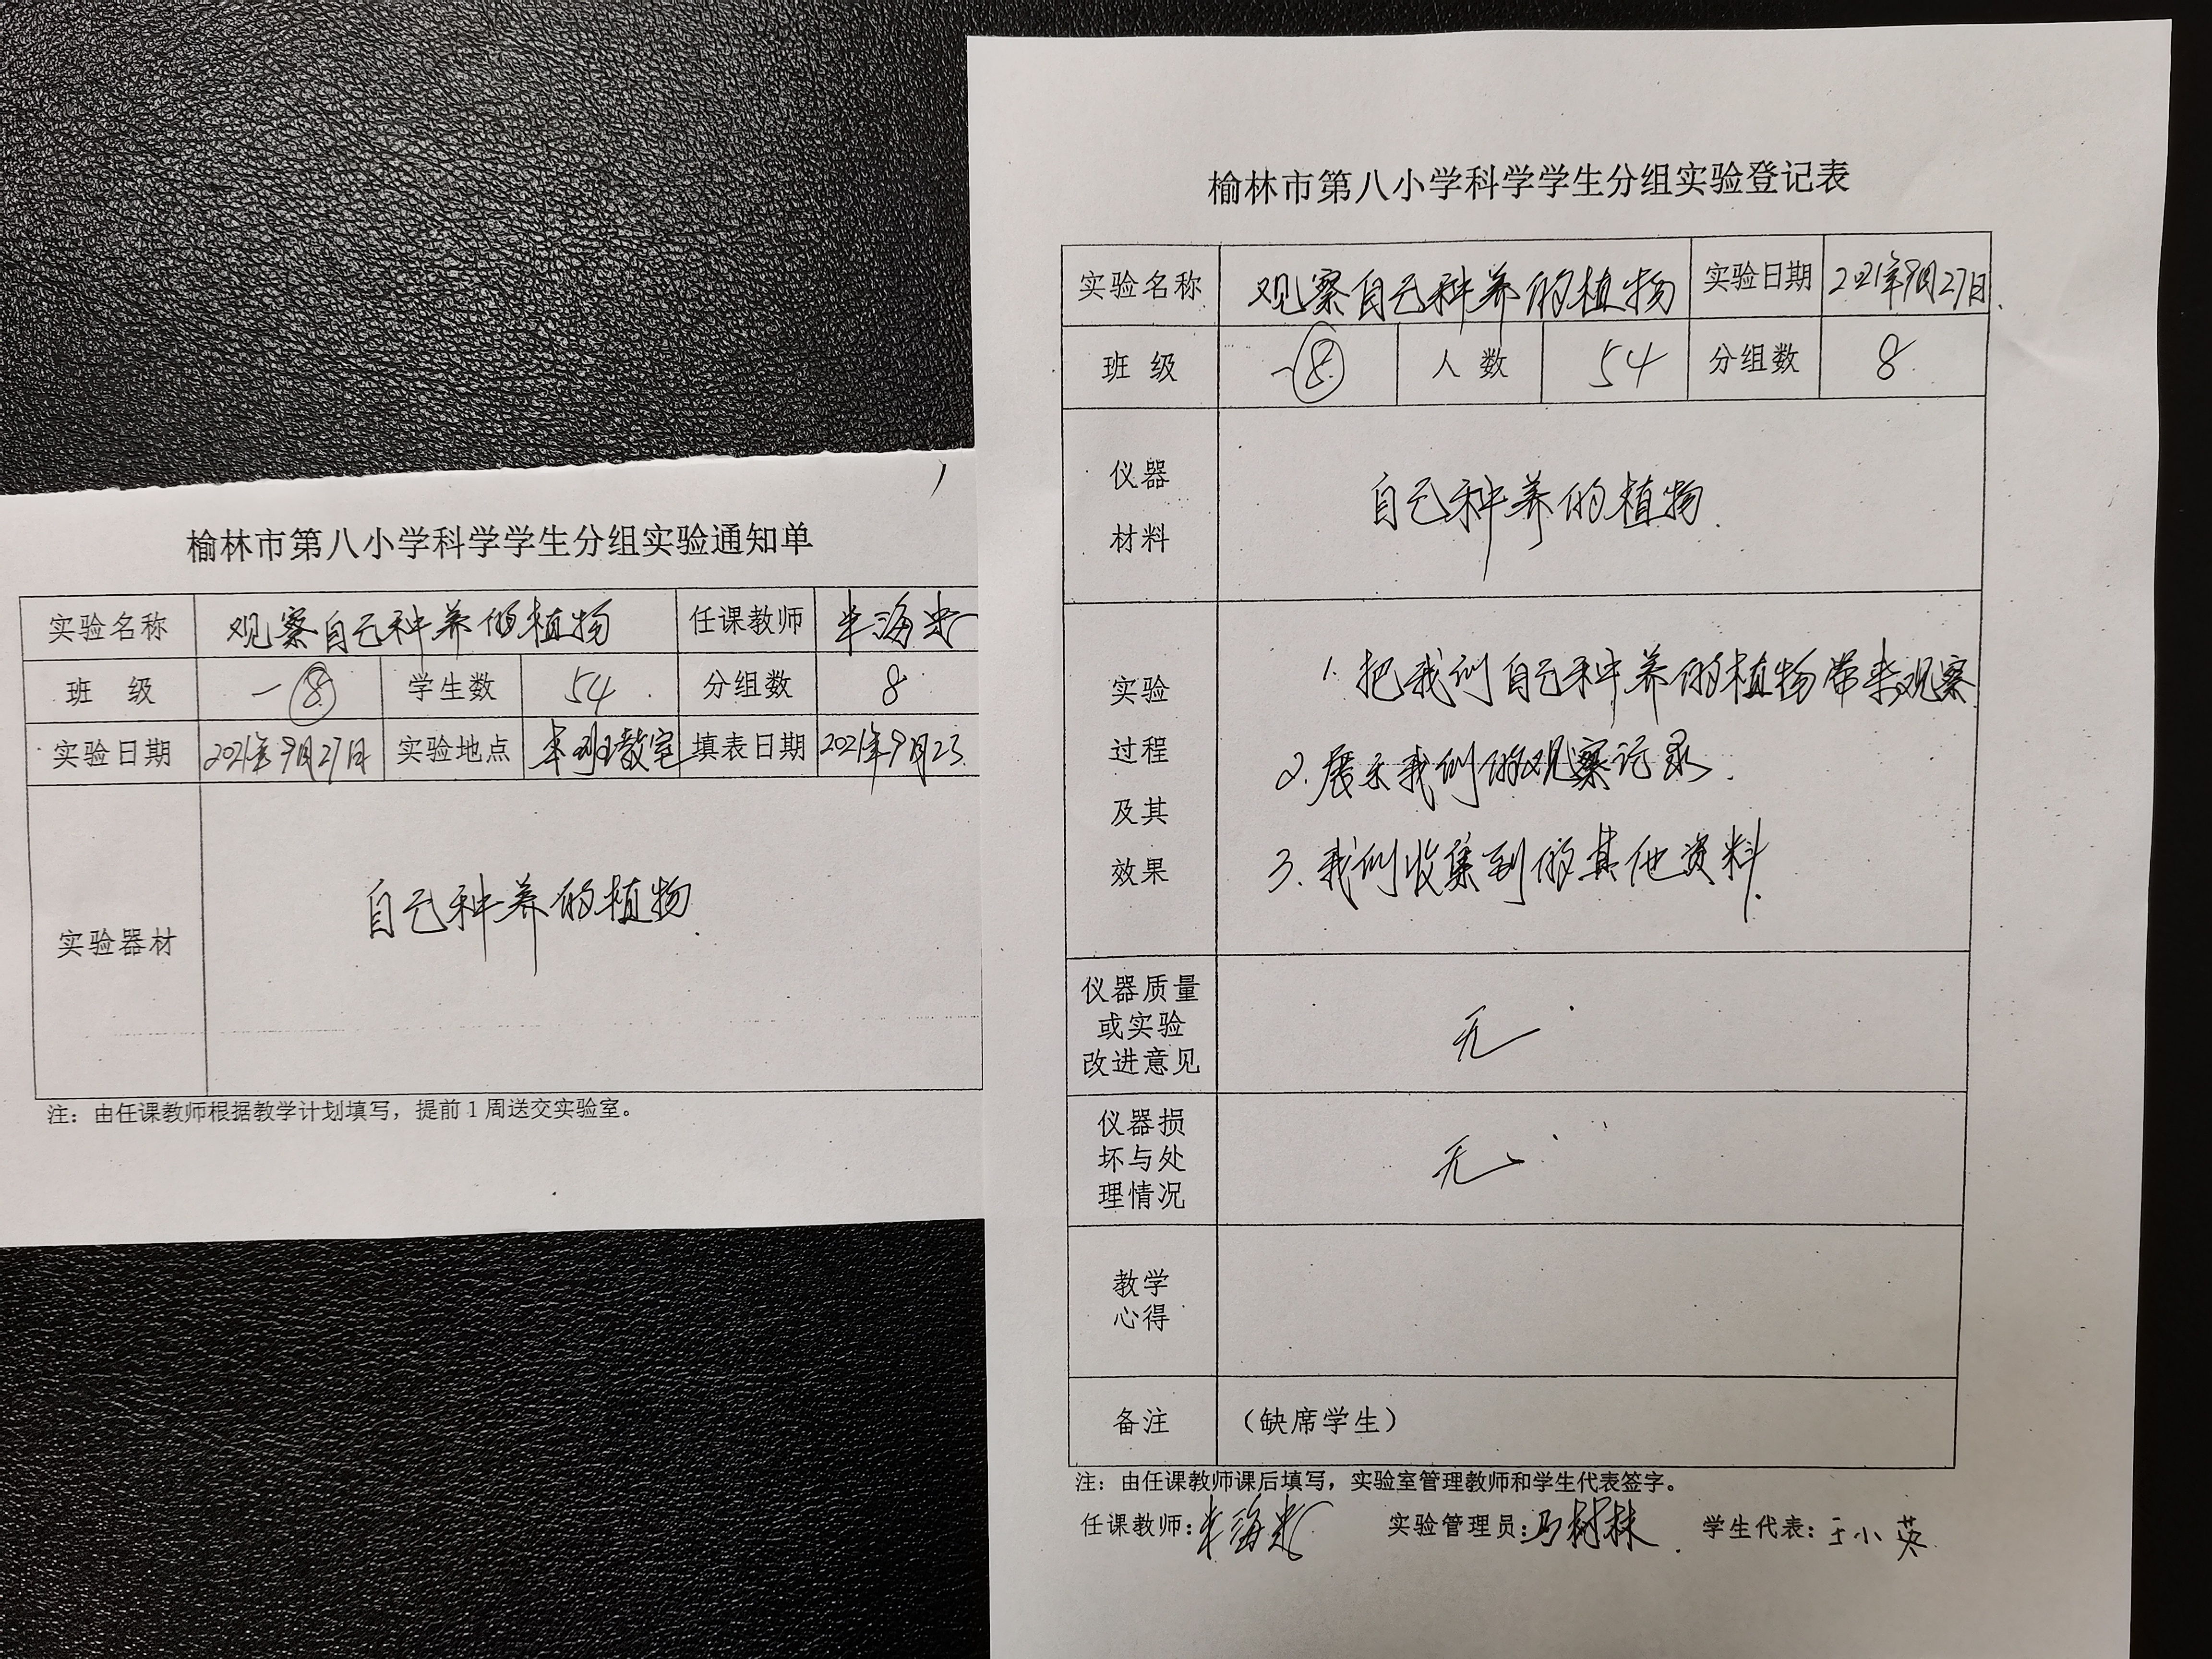 榆林市第八小学科学学生分组实验通知单
实验名称 观察自己种养的植物 任课教师
班 级 一⑧ 学生数 54 分组数 8
实验日期 2021年9月27日 实验地点 本班教室 填表日期 2021年9月23
实验器材 自己种养的植物
注：由任课教师根据教学计划填写，提前1周送交实验室。
榆林市第八小学科学学生分组实验登记表
实验名称 观察自己种养的植物 实验日期 2021年9月27日
班 级 一⑧ 人 数 54 分组数 8
仪器
材料
自己种养的植物
实验
过程
及其
效果
1. 把我们自己种养的植物带来观察
2. 展示我们的观察记录.
3. 我们收集到的其他资料.
仪器质量
或实验
改进意见
无
仪器损
坏与处
理情况
无
教学
心得
备注 （缺席学生）
注：由任课教师课后填写，实验室管理教师和学生代表签字。
任课教师： 实验管理员：马树林 学生代表：王小英